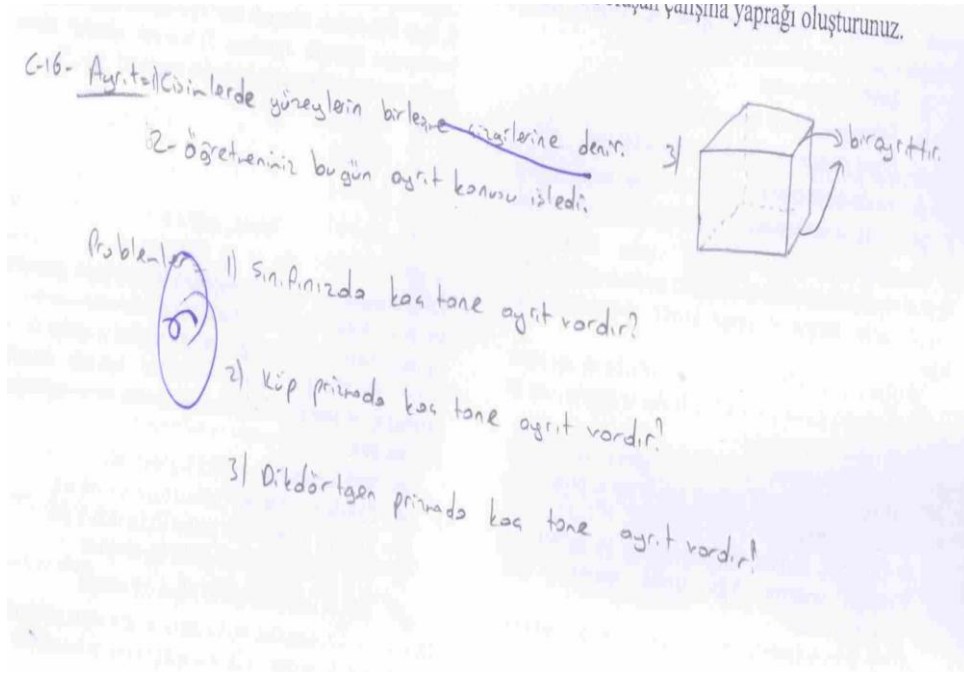 çalışma yaprağı oluşturunuz.
C-16- Ayrıt=1) Cisimlerde yüzeylerin birleşme çizgilerine denir.
2- Öğretmeniniz bugün ayrıt konusu işledi.
3) bir ayrıttır.
Problemler - 1) Sınıfınızda kaç tane ayrıt vardır?
2) Küp prizmada kaç tane ayrıt vardır?
3) Dikdörtgen prizmada kaç tane ayrıt vardır?